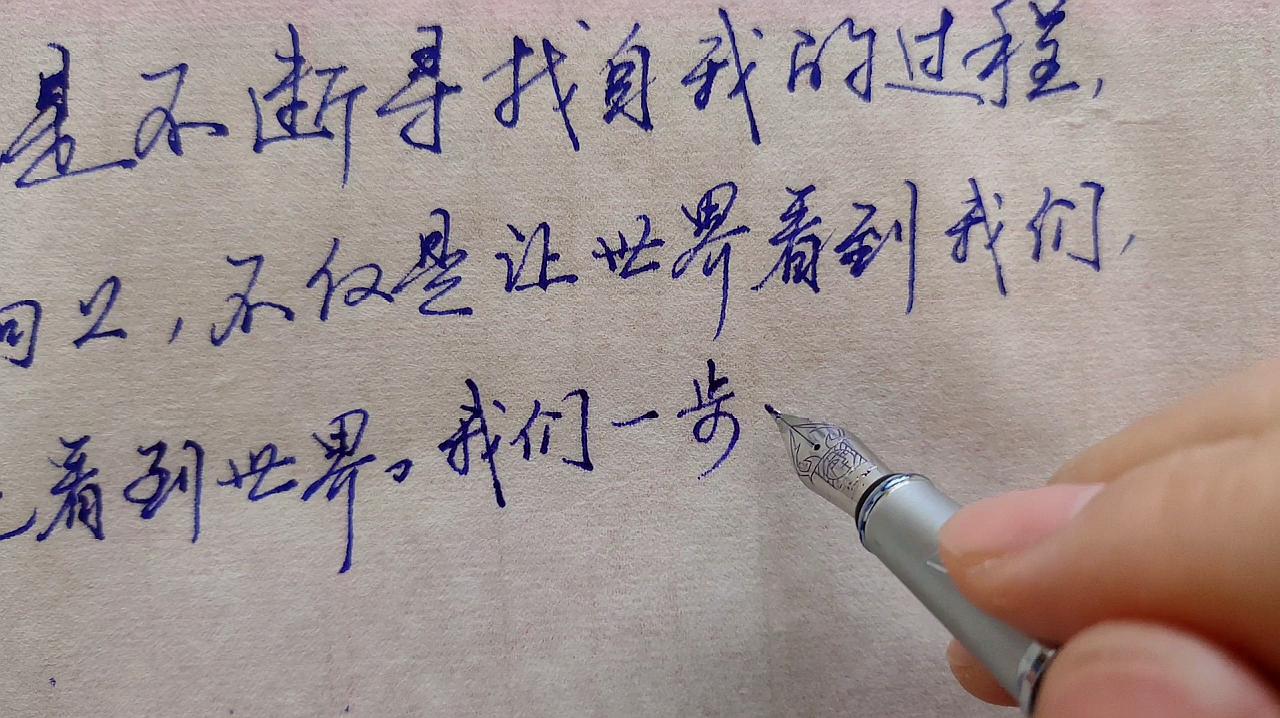 是不断寻找自我的过程,
向上,不仅是让世界看到我们,
看到世界。我们一步